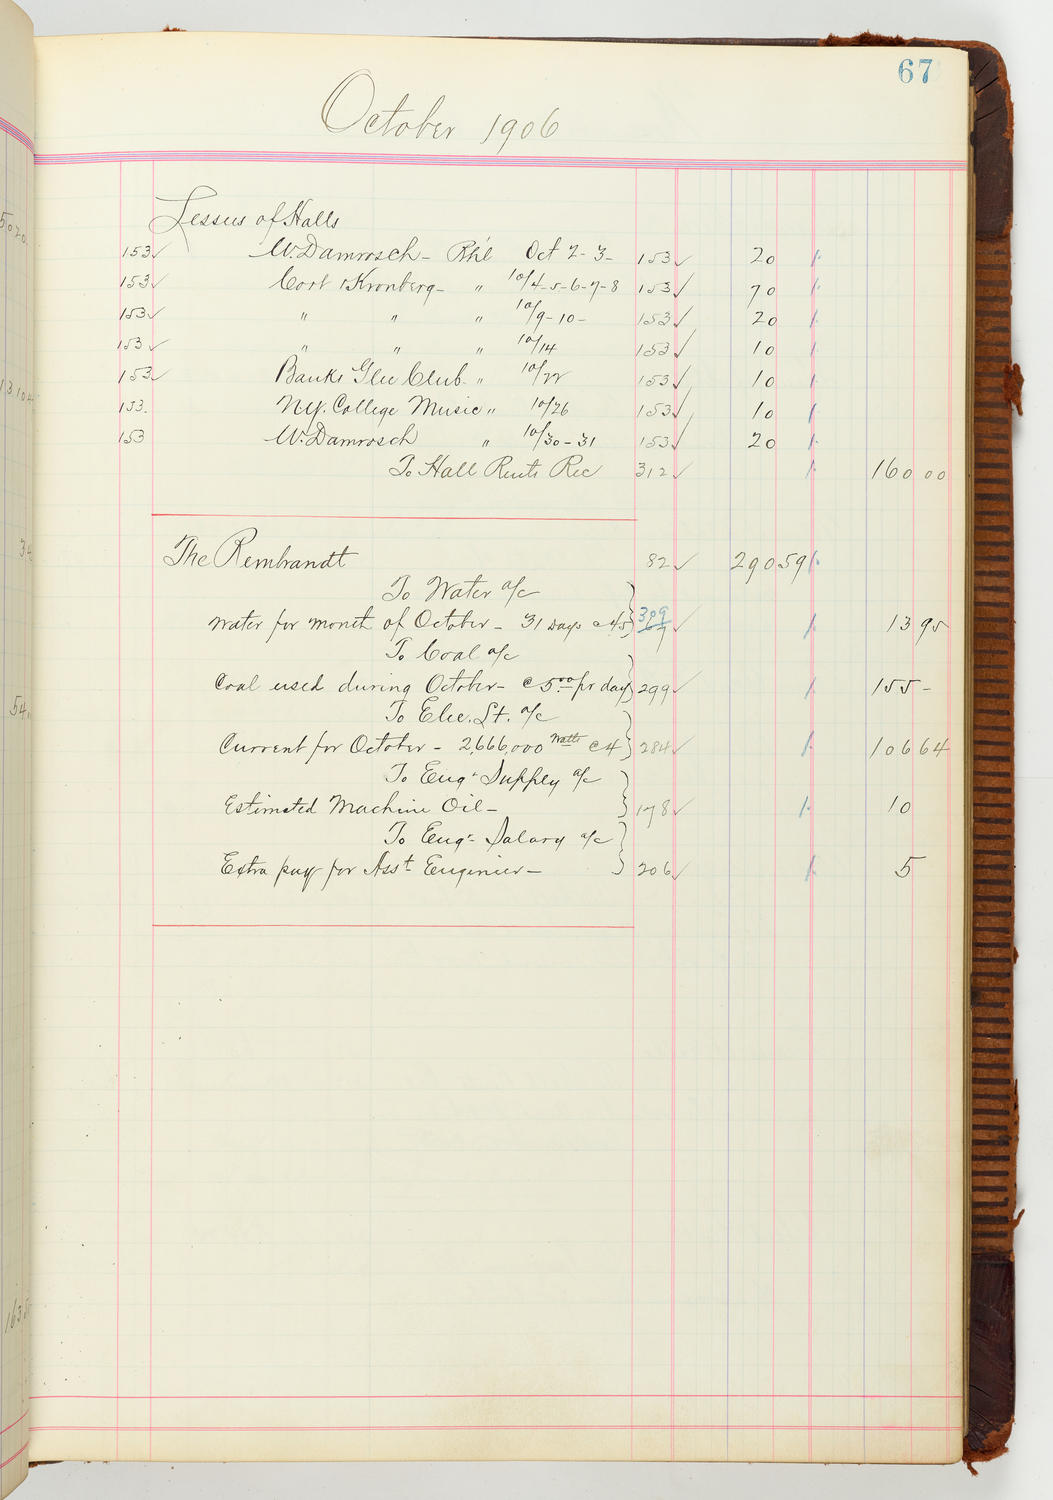 67
October 1906
Lessees of Halls
153✓ W. Damrosch - Rh'l Oct 2-3- 153✓ 20
153✓ Cort & Kronberg - " 10/4-5-6-7-8 153✓ 70
153✓ " " " 10/9-10- 153✓ 20
153✓ " " " 10/14 153✓ 10
153✓ Banks Glee Club - " 10/22 153✓ 10
153. N.Y. College Music " 10/26 153✓ 10
153 W. Damrosch " 10/30-31 153✓ 20
To Hall Rents Rec 312✓ 160 00
The Rembrandt 82✓ 290 59
To Water a/c
Water for month of October - 31 Days @ 45 309 ✓ 13 95
To Coal a/c
Coal used during October - @ 5.00 pr day 299✓ 155 -
To Elec. Lt. a/c
Current for October - 2,666,000 Watts @ 4 284✓ 106 64
To Engr Supply a/c
Estimated Machine Oil - 178✓ 10
To Engr Salary a/c
Extra pay for Asst Engineer - 206✓ 5
5020
54